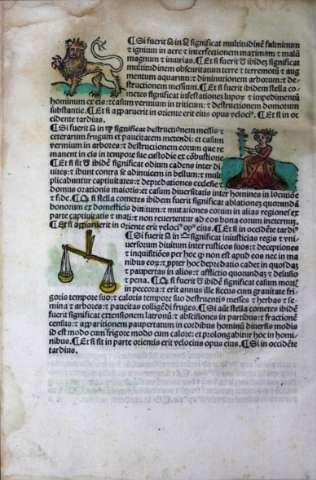 ¶ Si fuerit ☊ in ♌ significat multitudinē fulminum
et ignium in aere et interfectionem maximam et mala
magnum et iniurias. ¶ Et si fuerit ☋ ibidē significat
multitudinem obscuritatum terre et terremotū et au-
gmentum aquarum: et diminutionem arborum: et de-
structionem messium. ¶ Et si fuerit ibidem stella co-
metes significat infestationes luporū et impedimentū
hominum ex eis: et casum vermium in triticum: et destructionem domorum
¶ Et si apparuerit in oriente erit eius opus velociꝰ. ¶ Et si in oc-
cidente tardius.
¶ Si fuerit ☊ in ♍ significat destructionem messis et
et paucitatem metendi: et casum
vermium in arbores: et destructionem eorum que re-
manent in eis in tempore
☋
et ibunt contra
plicabuntur captivitates: et depredationes
domus orationis maioris: et casum diversitatis inter homines in locutione
et fide. ¶ si stella cometes ibidem fuerit significat ablationes quorundam
bonorum
parte captivitatis et mali: et non revertentur ad eos bona eorum in eternum.
¶ Et si apparuerit in oriente erit velociꝰ opꝰ eiꝰ. ¶ Et si in occidēte tardiꝰ
¶ Si fuerit ☊ in ♎ significat iniusticias regū et vni-
versorum divitum inter rusticos suos: et deceptiones
et inquisitiones per hoc qꝫ non est apud eos nec in vr-
bibus eoꝝ: et propter hoc depredatio cadet in quosdaꝫ
et pauperum in alios: et afflictio quorundaꝫ et delusio
et pena. ¶ Et si fuerit ☋ ibidē significat casum
in pecora: et erit annus ille siccus cum granitate fri-
goris tempore suo: et caloris tempore suo destruentis messes et herbas et se-
mina et arbores: et paucitas colligendi fruges. ¶ Si aūt stella cometes ibidē
fuerit significat extensionem latronū: et abscisiones in partibus: et fractionē
census: et apparitionem pauperum in cordibus hominū diversis modis
id est modo cum frigore modo cum calore: et prolongabitur hoc in homi-
nibus. ¶ Et si sit in parte orientis erit velocius opus eius. ¶ Si in occidēte
tardius.